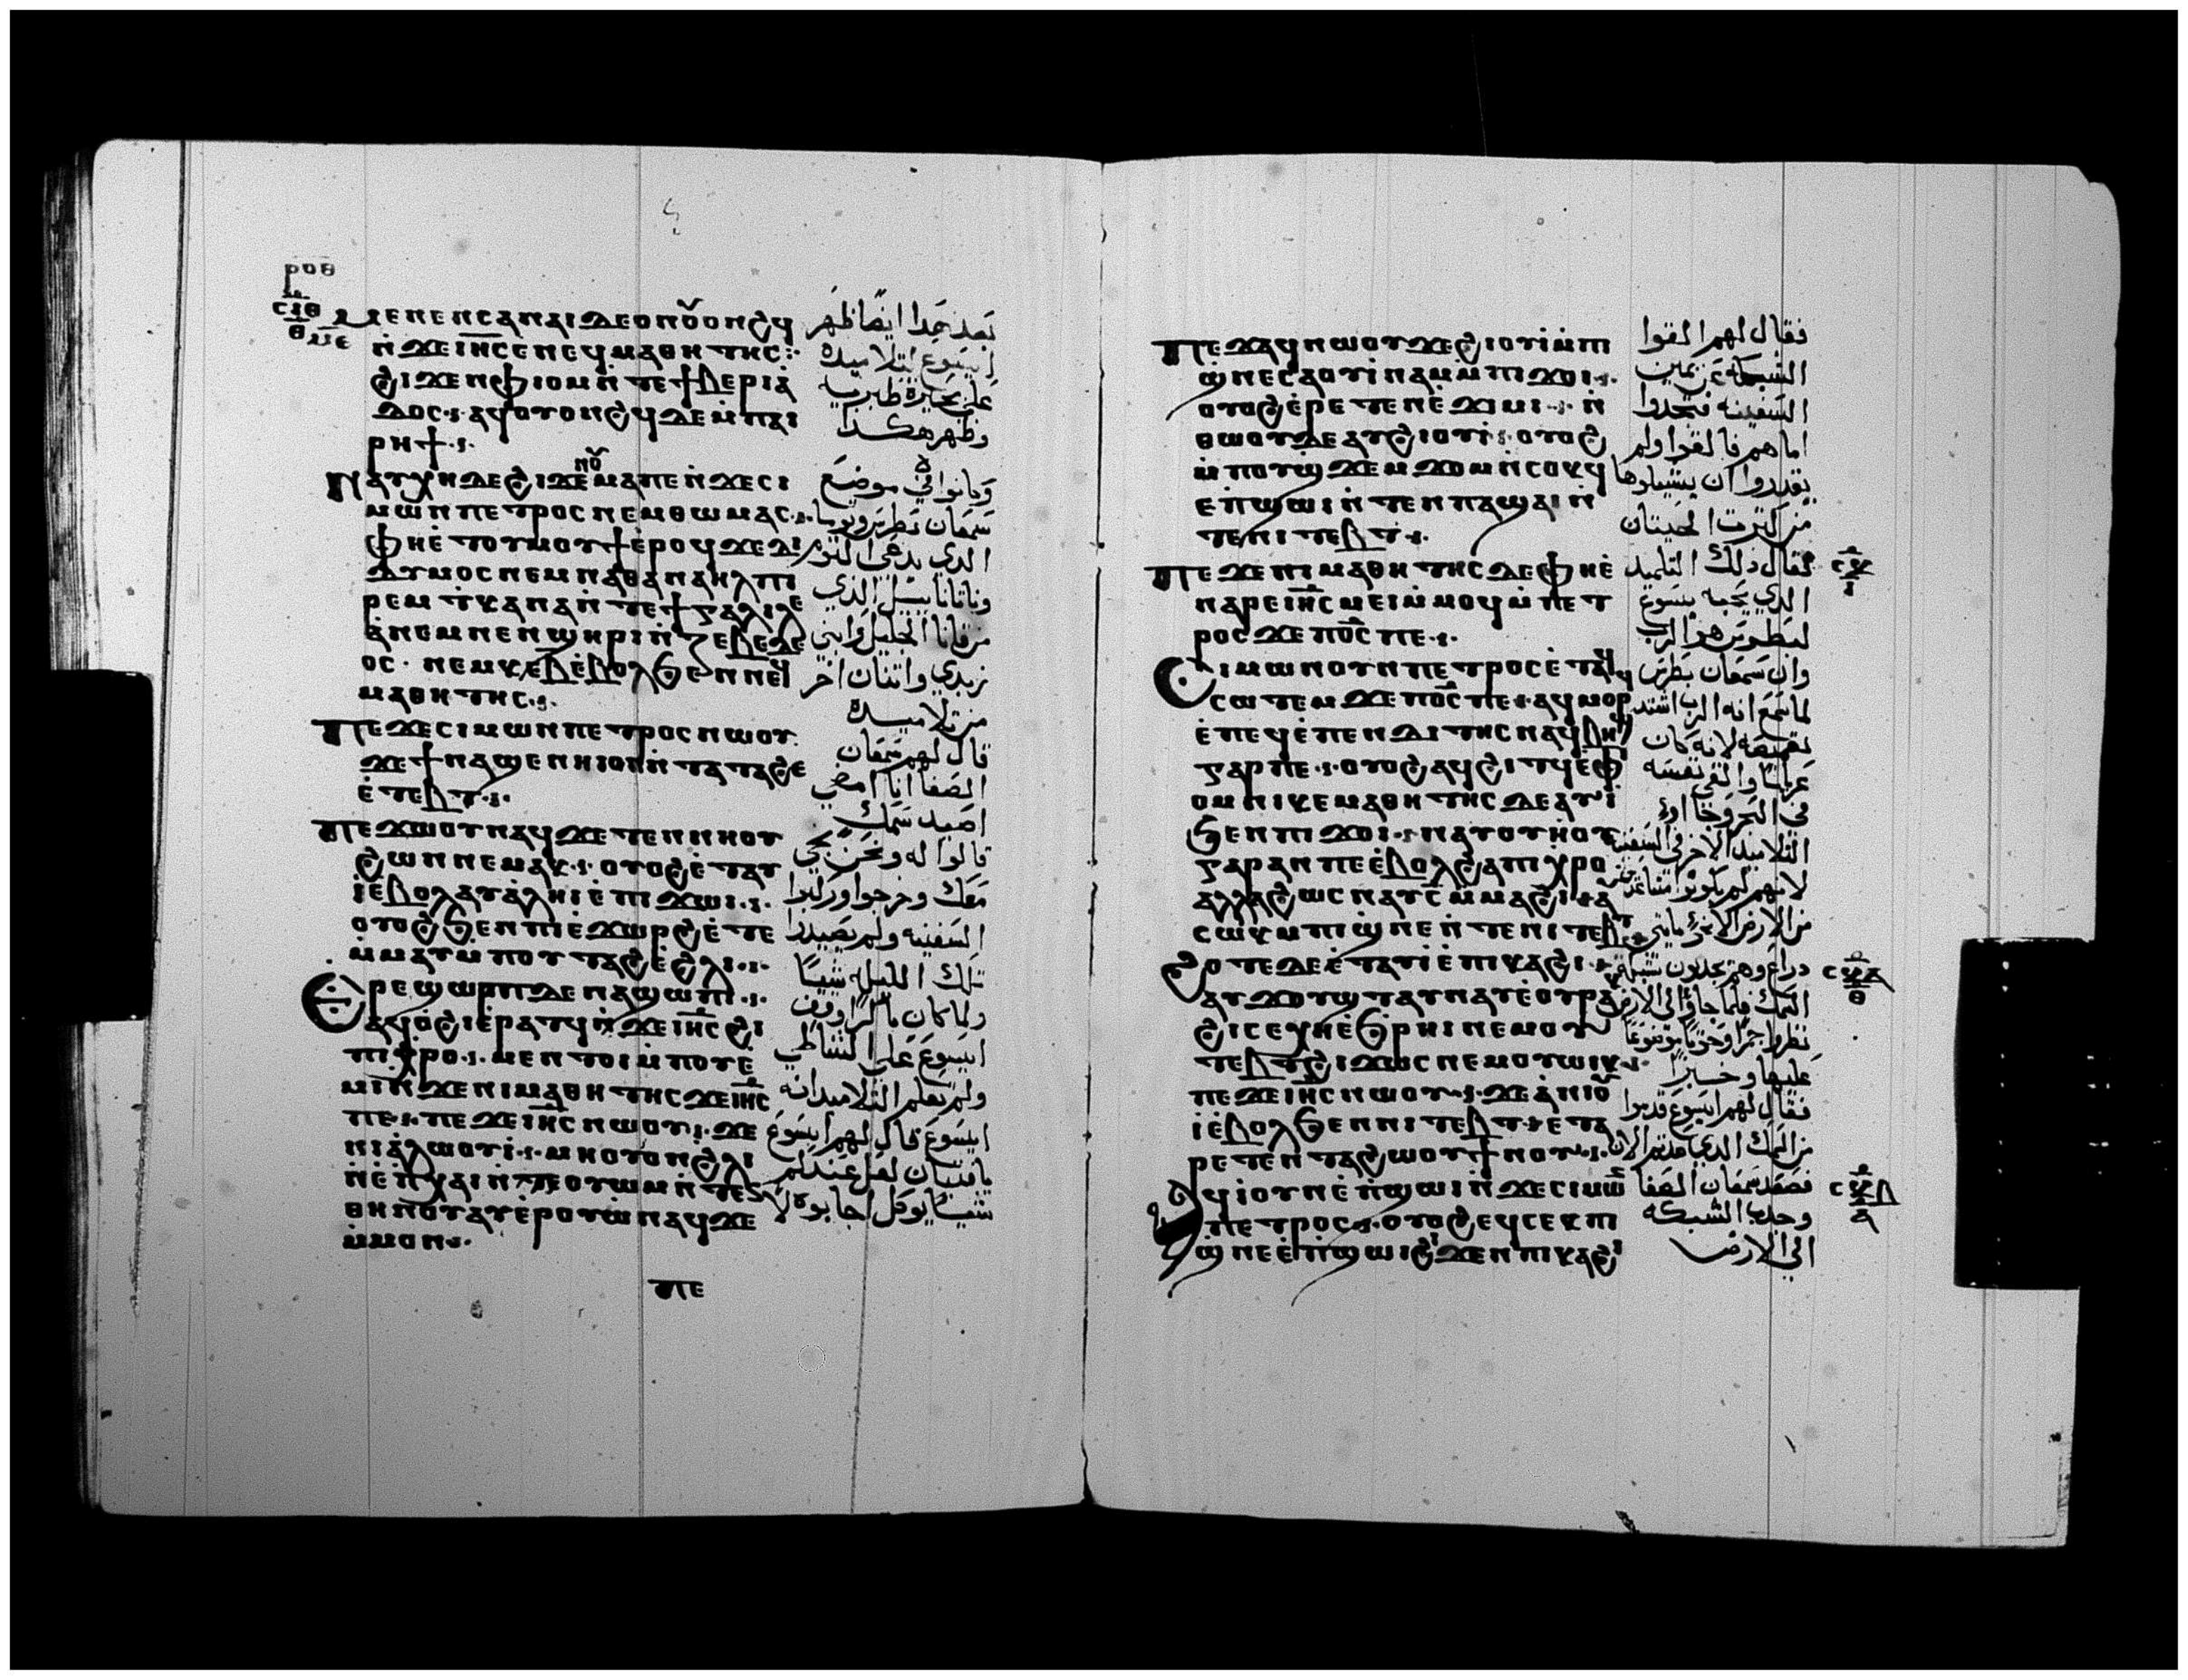 ⲣⲟⲑ
ⲥⲓⲑ
ⲑ
ⲙⲉ
ⲙⲉⲛⲉⲛⲥⲁⲛⲁⲓⲇⲉⲟⲛⲟ̅ⲟⲛϩϥ
ⲛ̀ϫⲉⲓⲏ̅ⲥ̅ⲉⲛⲉϥⲙⲁⲑⲏⲧⲏⲥ
ϩⲓϫⲉⲛⲫⲓⲟⲙⲛ̀ⲧⲉϯⲃⲉⲣⲓⲁ̀
ⲇⲟⲥ ⲁϥⲟⲩⲟⲛϩϥⲇⲉⲙ̀ⲡⲁⲓ
ⲣⲏϯ
ⲛⲁⲩⲭⲏⲇⲉϩⲓϫⲉⲛⲟ̅ⲙⲁⲡⲉⲛ̀ϫⲉⲥⲓ
ⲙⲱⲛⲡⲉⲧⲣⲟⲥⲛⲉⲙⲑⲱⲙⲁⲥ
ⲫⲏⲉ̀ⲧⲟⲩⲙⲟⲩϯⲉ̀ⲣⲟϥϫⲉⲇⲓ
ⲇⲩⲙⲟⲥⲛⲉⲙⲛⲁⲑⲁⲛⲁⲏⲗⲡⲓ
ⲣⲉⲙⲧ̀ⲕⲁⲛⲁⲛ̀ⲧⲉϯⲅⲁⲗⲓⲗⲉ
ⲁ̀ⲛⲉⲙⲛⲉⲛϣⲏⲣⲓⲛ̀ⲍⲉⲃⲉⲇⲉ
ⲟⲥ ⲛⲉⲙⲕⲉⲃ̅ⲉ̀ⲃⲟⲗϧⲉⲛⲛⲉϥ
ⲙⲁⲑⲏⲧⲏⲥ
ⲡⲉϫⲉⲥⲓⲙⲱⲛⲡⲉⲧⲣⲟⲥⲛⲱⲟⲩ
ϫⲉϯⲛⲁϣⲉⲛⲏⲓⲟⲛⲛ̀ⲧⲁⲧⲁϩⲉ
ⲉ̀ⲧⲉⲃⲧ
ⲡⲉϫⲱⲟⲩⲛⲁϥϫⲉⲧⲉⲛⲛⲏⲟⲩ
ϩⲱⲛⲛⲉⲙⲁⲕ ⲟⲩⲟϩⲉ̀ⲧⲁⲩ
ⲓ̀ⲉ̀ⲃⲟⲗⲁⲩⲁ̀ⲗⲏⲓⲉ̀ⲡⲓϫⲱⲓ
ⲟⲩⲟϩϧⲉⲛⲡⲓⲉ̀ϫⲱⲣϩⲉ̀ⲧⲉ
ⲙ̀ⲙⲁⲩⲙ̀ⲡⲟⲩⲧⲁϩⲉ̀ϩⲗⲓ
ⲉⲣⲉϣⲱⲣⲡⲇⲉⲛⲁϣⲱⲡⲓ
ⲁϥⲟ̀ϩⲓⲉ̀ⲣⲁⲧϥⲛ̀ϫⲉⲓⲏ̅ⲥ̅ϩⲓ
ⲡⲓⲭⲣⲟ ⲙⲉⲛⲧⲟⲓⲙ̀ⲡⲟⲩⲉ̀
ⲙⲓⲛ̀ϫⲉⲛⲓⲙⲁⲑⲏⲧⲏⲥϫⲉⲓⲏ̅ⲥ̅
ⲡⲉ ⲡⲉϫⲉⲓⲏ̅ⲥ̅ⲛⲱⲟⲩ ϫⲉ
ⲛⲓⲁ̀ⲗⲱⲟⲩⲓ̀ ⲙⲏⲟⲩⲟⲛϩⲗⲓ
ⲛ̀ⲉ̀ⲛⲭⲁⲓⲛ̀ⲟⲩⲱⲙⲛ̀ⲧⲉ
ⲑⲏⲛⲟⲩⲁⲩⲉ̀ⲣⲟⲩⲱ̀ⲛⲁϥϫⲉ
ⲙ̀ⲙⲟⲛ
ⲡⲉ
بعد هدا ايضا ظهر
ايسوع لتلاميده
على بحيرة طبريه
وظهر هكدا
وكانوا في موضع
سمعان بطرس وتوما
الدي يدعى التوم
وناتانا ييل الذي
من قانا الجليل وابني
زبدي واتنان اخر
من تلاميده
قال لهم سمعان
الصفا انا امضي
اصيد سمك
قالوا له ونحن نجي
معك وخرجوا وركبوا
السفينه ولم يصيدوا
تلك الليله شيا
ولما كان باكرا وقف
ايسوع على الشاطي
ولم تعلم التلاميد انه
ايسوع قال لهم ايسوع
يافتيان لعل عندكم
شيا يوكل اجابوه لا
ⲡⲉϫⲁϥⲛⲱⲟⲩϫⲉϩⲓⲟⲩⲓ̀ⲙ̀ⲡⲓ
ϣ̀ⲛⲉⲥⲁⲟⲩⲓ̀ⲛⲁⲙⲙ̀ⲡⲓϫⲟⲓ
ⲟⲩⲟϩⲉ̀ⲣⲉⲧⲉⲛⲉ̀ϫⲓⲙⲓ ⲛ̀
ⲑⲱⲟⲩⲇⲉⲁⲩϩⲓⲟⲩⲓ̀ ⲟⲩⲟϩ
ⲙ̀ⲡⲟⲩϣϫⲉⲙϫⲟⲙⲛ̀ⲥⲟⲕϥ
ⲉⲡ̀ϣⲱⲓⲛ̀ⲧⲉⲛⲡⲁϣⲁⲓⲛ̀
ⲧⲉⲛⲓⲧⲉⲃⲧ
ⲡⲉϫⲉⲡⲓⲙⲁⲑⲏⲧⲏⲥⲇⲉⲫⲏⲉ̀
ⲛⲁⲣⲉⲓⲏ̅ⲥ̅ⲙⲉⲓⲙ̀ⲙⲟϥⲙ̀ⲡⲉⲧ
ⲣⲟⲥϫⲉⲡⲟ̅ⲥ̅ⲡⲉ
ⲥⲓⲙⲱⲛⲟⲩⲛⲡⲉⲧⲣⲟⲥⲉ̀ⲧⲁϥ
ⲥⲱⲧⲉⲙϫⲉⲡⲟ̅ⲥ̅ⲡⲉ ⲁϥⲙⲟⲣ
ⲉ̀ⲡⲉϥⲉ̀ⲡⲉⲛⲇⲓⲧⲏⲥⲛⲁϥⲃⲏϣ
ⲅⲁⲣⲡⲉ ⲟⲩⲟϩⲁϥϩⲓⲧϥⲉⲫ
ⲓⲟⲙⲛⲓⲕⲉⲙⲁⲑⲏⲧⲏⲥⲇⲉⲁⲩⲓ̀
ϧⲉⲛⲡⲓϫⲟⲓ ⲛⲁⲩⲟⲩⲏ̀ⲟⲩ
ⲅⲁⲣⲁⲛⲡⲉⲉ̀ⲃⲟⲗϩⲁⲡⲓⲭⲣⲟ
ⲁⲗⲗⲁϩⲱⲥⲛⲁⲩⲥ̅ⲙ̀ⲙⲁϩⲓ ⲁⲩ
ⲥⲱⲕⲙ̀ⲡⲓϣ̀ⲛⲉⲛ̀ⲧⲉⲛⲓⲧⲉⲃⲧ
ϩⲟⲧⲉⲇⲉⲉ̀ⲧⲁⲩⲓ̀ⲉ̀ⲡⲓⲕⲁϩⲓ
ⲁⲩϫⲟⲩϣⲧⲁⲩⲛⲁⲩⲉ̀ⲟⲩⲣⲁ
ϩⲓⲥⲉⲭⲏⲉ̀ϧⲣⲏⲓⲛⲉⲙⲟⲩ
ⲧⲉⲃⲧϩⲓϫⲱⲥⲛⲉⲙⲟⲩⲱⲓⲕ
ⲡⲉϫⲉⲓⲏ̅ⲥ̅ⲛⲱⲟⲩ ϫⲉⲁ̀ⲛⲓⲟⲩ̅
ⲓ̀ⲉ̀ⲃⲟⲗϧⲉⲛⲛⲓⲧⲉⲃⲧ ⲉⲧⲁ
ⲣⲉⲧⲉⲛⲧⲁϩⲱⲟⲩϯⲛⲟⲩ
ⲁϥⲓ̀ⲟⲩⲛⲉ̀ⲡ̀ϣⲱⲓⲛ̀ϫⲉⲥⲓⲙⲱ̅
ⲡⲉⲧⲣⲟⲥ ⲟⲩⲟϩⲉϥⲥⲉⲕⲡⲓ
ϣ̀ⲛⲉⲉ̀ⲡ̀ϣⲱⲓϩⲓϫⲉⲛⲡⲓⲕⲁϩⲓ
فقال لهم القوا
الشبكه عن يمين
السفينه فتجدوا
اما هم فالقوا ولم
يقدروا ان يشيلوها
من كترت الحيتان
فقال دلك التلميد
الدي يحبه يسوع
لبطرس هو الرب
وان سمعان بطرس
لما سمع انه الرب اشتد
بقميصه لانه كان
عريانا والقى نفسه
في البحر وجاا اولا
التلاميد الاخر في السفينه
لانهم لم يكونوا متباعدين
من الارض الا نحو مايتي
دراع وهم يجدبون شبكة
السمك فلما جاوا الى الارض
نظروا جمرا وحوتا موضوعا
عليها وخبزا
فقال لهم ايسوع قدموا
من السمك الدي صدتم الان
فصعد سمعان الصفا
وجدب الشبكه
الى الارض
ⲥⲕ
ⲓ
ⲥⲕⲁ
ⲑ
ⲥⲕⲃ
ⲁ